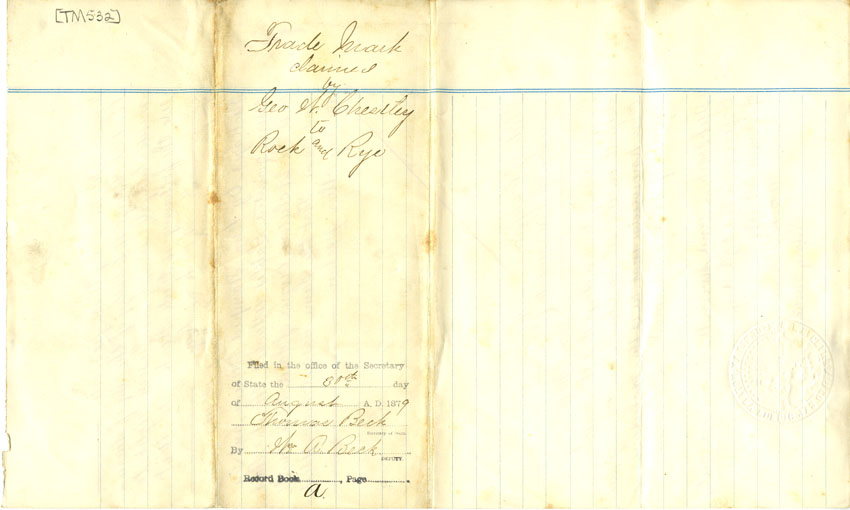 [TM532]
Trade Mark
claimed
by
Geo W. Chesley
to
Rock and Rye
Filed in the office of the Secretary
of State the 30th day
of August A. D. 1879
Thomas Beck
Secretary of State
By Wm B Beck
DEPUTY.
Record Book , Page .
A